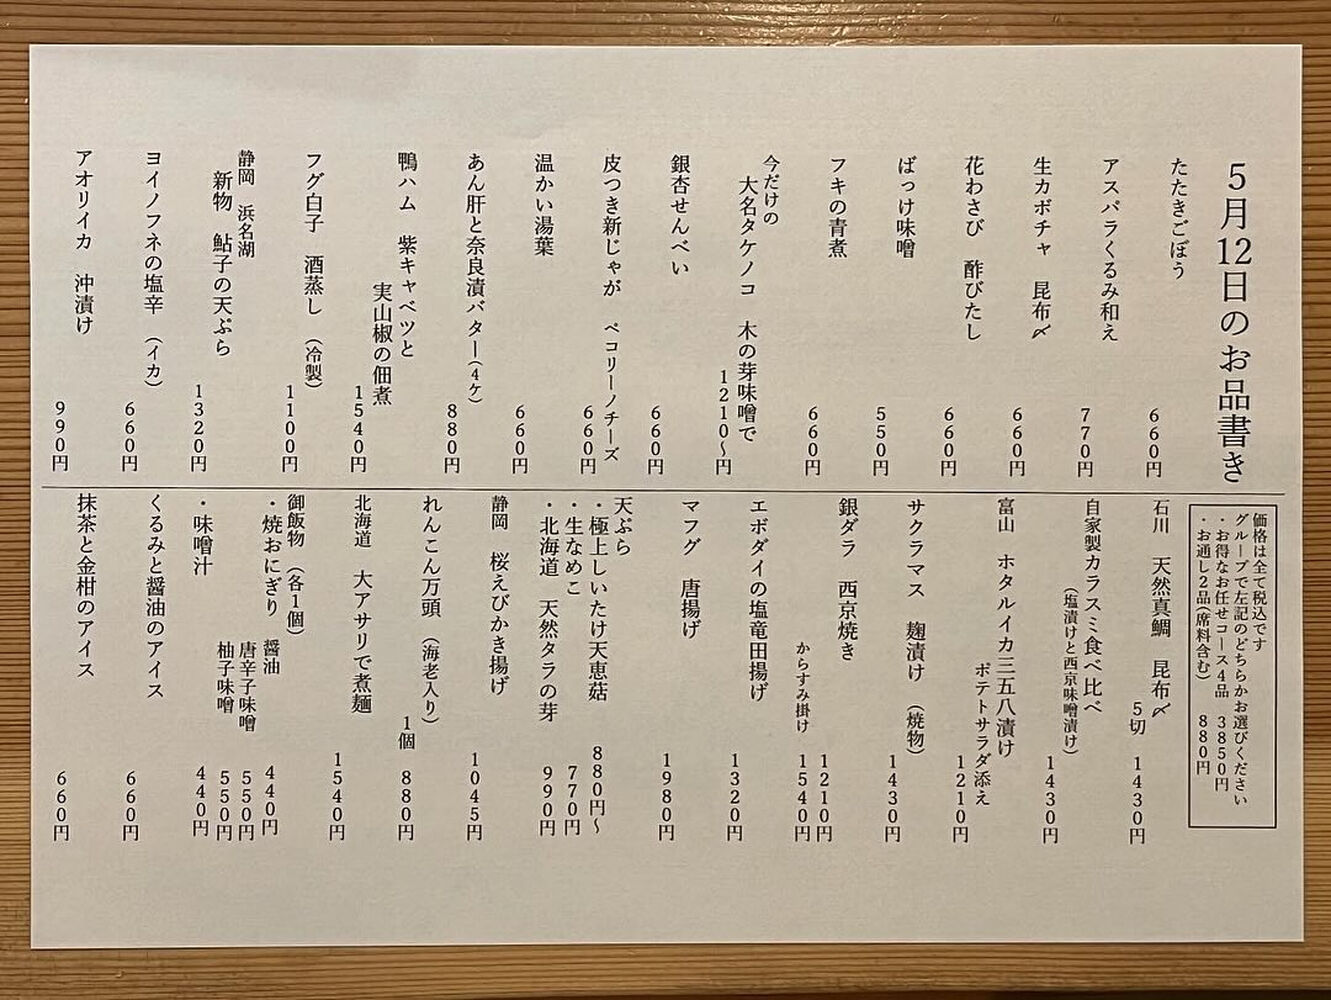 5月12日のお品書き
たたきごぼう
660円
アスパラくるみ和え
770円
生カボチャ 昆布〆
660円
花わさび 酢びたし
660円
ばっけ味噌
550円
フキの青煮
660円
今だけの
大名タケノコ 木の芽味噌で
1210〜円
銀杏せんべい
660円
皮つき新じゃが ペコリーノチーズ
660円
温かい湯葉
660円
あん肝と奈良漬バター(4ケ)
880円
鴨ハム 紫キャベツと
実山椒の佃煮
1540円
フグ白子 酒蒸し (冷製)
1100円
静岡 浜名湖
新物 鮎子の天ぷら
1320円
ヨイノフネの塩辛 (イカ)
660円
アオリイカ 沖漬け
990円
価格は全て税込です
グループで左記のどちらかお選びください
・お得なお任せコース4品 3850円
・お通し2品(席料含む) 880円
石川 天然真鯛 昆布〆
5切 1430円
自家製カラスミ食べ比べ
(塩漬けと西京味噌漬け)
1430円
富山 ホタルイカ三五八漬け
ポテトサラダ添え
1210円
サクラマス 麹漬け (焼物)
1430円
銀ダラ 西京焼き
1210円
からすみ掛け 1540円
エボダイの塩竜田揚げ
1320円
マフグ 唐揚げ
1980円
天ぷら
・極上しいたけ天恵菇 880円〜
・生なめこ 770円
・北海道 天然タラの芽 990円
静岡 桜えびかき揚げ
1045円
れんこん万頭 (海老入り)
1個 880円
北海道 大アサリで煮麺
1540円
御飯物 (各1個)
・焼おにぎり 醤油 440円
唐辛子味噌 550円
柚子味噌 550円
・味噌汁 440円
くるみと醤油のアイス
660円
抹茶と金柑のアイス
660円